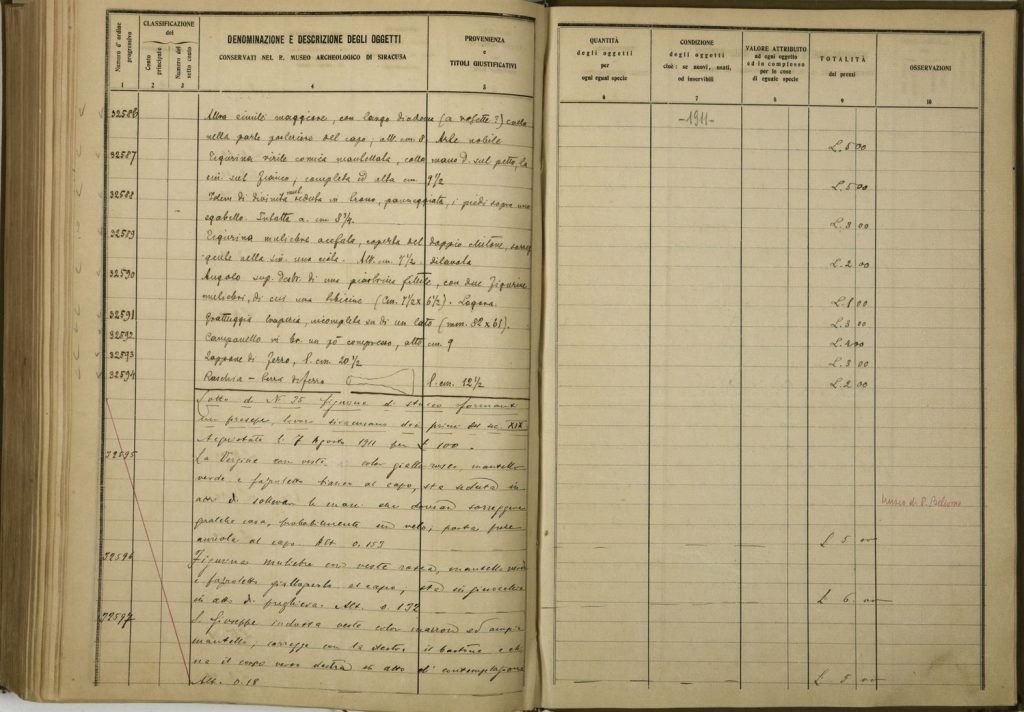 Numero d'ordine progressivo
CLASSIFICAZIONE
del
Conto principale
Numero del sotto conto
DENOMINAZIONE E DESCRIZIONE DEGLI OGGETTI
CONSERVATI NEL R. MUSEO ARCHEOLOGICO DI SIRACUSA
PROVENIENZA
e
TITOLI GIUSTIFICATIVI
1 2 3 4 5
32586 Altra simile maggiore, con largo diadema (a rosette?) cavo
nella parte posteriore del capo, alt. cm 8 Arte nobile
32587 Figurina virile comica mantellata, colla mano D. sul petto, la
sin sul fianco; completa ed alta cm. 9 1/2
32588 Idem di divinità mul. seduta in trono, panneggiata, i piedi sopra uno
sgabello Intatta a. cm 8 3/4.
32589 Figurina muliebre acefala, coperta del doppio chitone,
nella sin una Alt. cm. 7 1/2. dilavata
32590 Angolo sup. Destr. di una piastrina fittile, con due figurine
muliebri, di cui una tibicine (cm. 7 1/2 x 6 1/2). Logora
32591 Grattuggia incompleta su di un lato (mm. 82 x 61).
32592 Campanello in br. un pò compresso, alto cm. 9
32593 Zappone di ferro, l. cm. 20 1/2
32594 Raschia-terra di ferro l. cm. 12 1/2
Sotto il N. 35 figurine di stucco formanti
un presepe, lavoro siracusano dei primi del sec. XIX
Acquistate il 7 Agosto 1911 per £ 100.
32595 La Vergine con veste color giallo-roseo, mantello
verde e fazzoletto bianco al capo, sta seduta in
atto di sollevar le mani che dovean sorreggere
qualche cosa, probabilmente un velo; porta pure
aureola al capo. Alt. 0.153
32596 Figurina muliebre con veste rossa, mantello verde
e fazzoletto giallognolo al capo, sta in ginocchio
in atto di preghiera. Alt. 0.132
32597 S. Giuseppe indossa veste color marrone ed ampio
mantello, sorregge con la destra il bastone e
il corpo verso destra in atto di contemplazione
Alt. 0.18
QUANTITÀ
degli oggetti
per
ogni egual specie
CONDIZIONE
degli oggetti
cioè: se nuovi, usati,
od inservibili
VALORE ATTRIBUITO
ad ogni oggetto
od in complesso
per le cose
di eguale specie
TOTALITÀ
dei prezzi
OSSERVAZIONI
6 7 8 9 10
-1911-
L. 5 00
L. 5 00
L. 3 00
L. 2 00
L. 1 00
L. 3 00
L. 4 00
L. 3 00
L. 2 00
Museo di P. Bellomo
£ 5 00
£ 6 00
£ 5 00